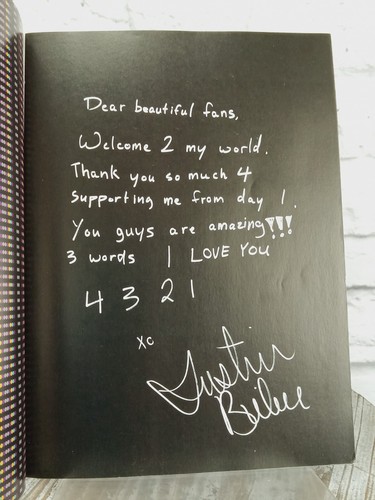 Dear beautiful fans,
Welcome 2 my world.
Thank you so much 4
supporting me from day 1.
You guys are amazing!!!
3 words | I LOVE YOU
4 3 2 1
xo
Justin
Bieber